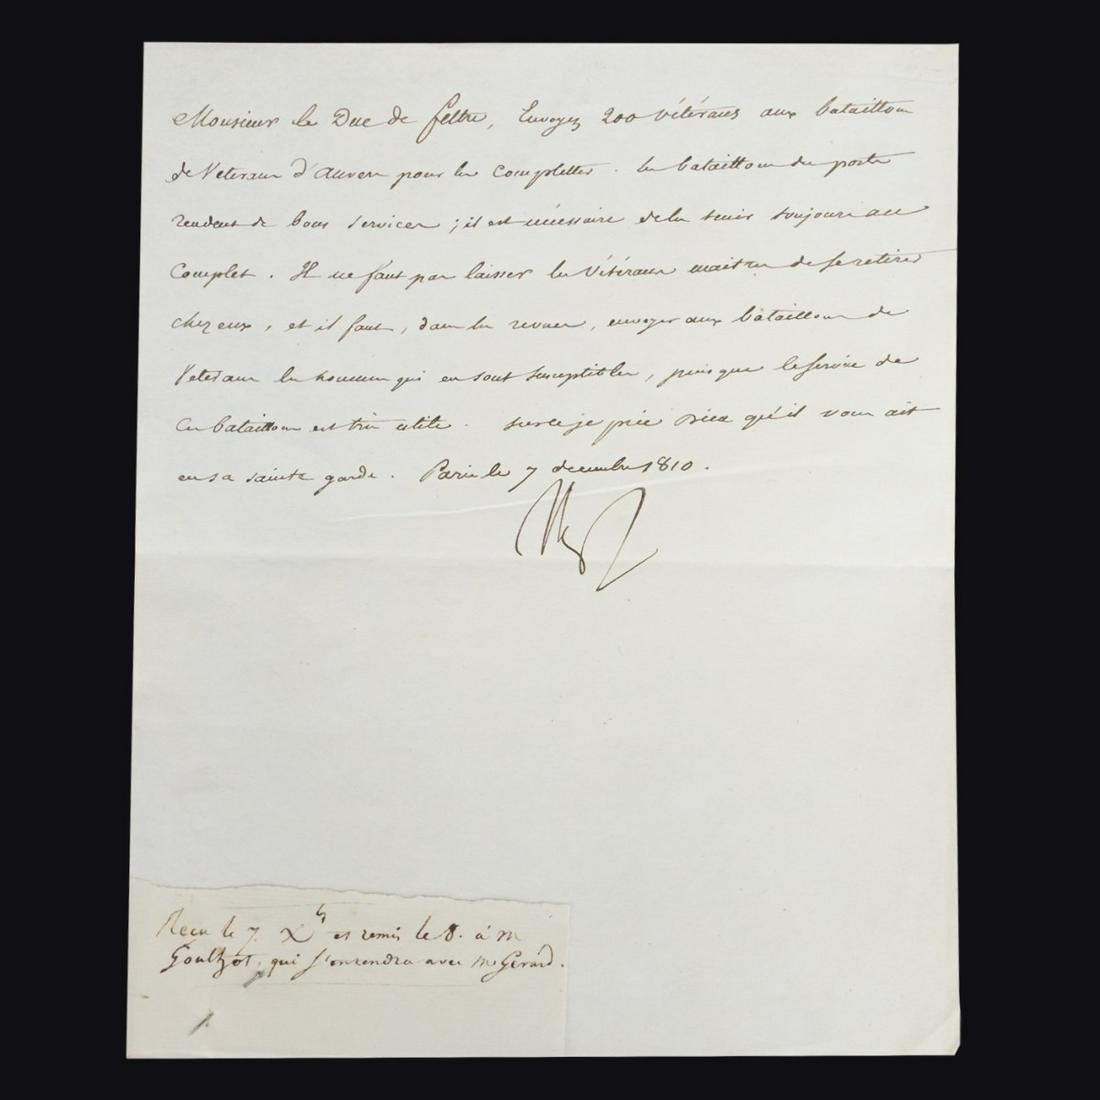 Monsieur le Duc de feltre, Envoyez 200 vétérans aux bataillons
de Veterans d'Anvers pour les Completter. les bataillons du poste
rendent de bons services ; il est nécessaire de les tenir toujours au
Complet. Il ne faut pas laisser les Vétérans maitres de se retirer
chez eux, et il faut, dans les revues, envoyer aux bataillons de
Veterans les hommes qui en sont susceptibles, puisque le service de
Ces bataillons est très utile. sur ce je prie Dieu qu'il vous ait
en sa sainte garde. Paris le 7 decembre 1810.
Np
Recu le 7. Xb et remis le 8. à m
qui s'entendra avec mr Gerard.